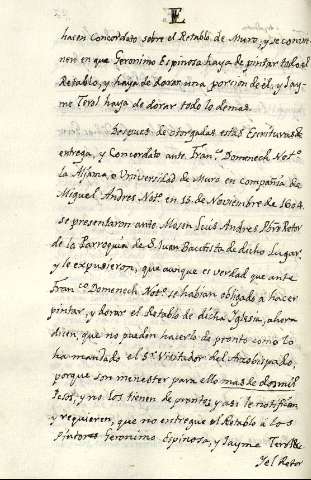 E
hacen Concordato sobre el Retablo de Muro, y se convie-
nen en que Geronimo Espinosa haya de pintar todo el
Retablo, y haya de dorar una porcion de él, y Jay-
me Terol haya de dorar todo lo demas.
Despues de otorgadas estas Escrituras de
entrega, y Concordato ante Fran.co Domenech Not.o
la Aljama, o Universidad de Muro en compañia de
Miguel Andres Not.o en 15 de Noviembre de 1604
se presentaron ante Mosen Luis Andres Pbro Retor
de la Parroquia de S. Juan Bautista de dicho Lugar,
y le expusieron, que aunque es verdad que ante
Fran.co Domenech Not.o se habian obligado a hacer
pintar, y dorar el Retablo de dicha Iglesia, ahora
dicen, que no pueden hacerlo de pronto como lo
ha mandado el S.r Visitador del Arzobispado,
porque son menester para ello mas de dos mil
Pesos, y no los tienen de prontos, y asi le notifican
y requieren, que no entregue el Retablo a los
Pintores Geronimo Espinosa, y Jayme Terol &c
Y el Retor